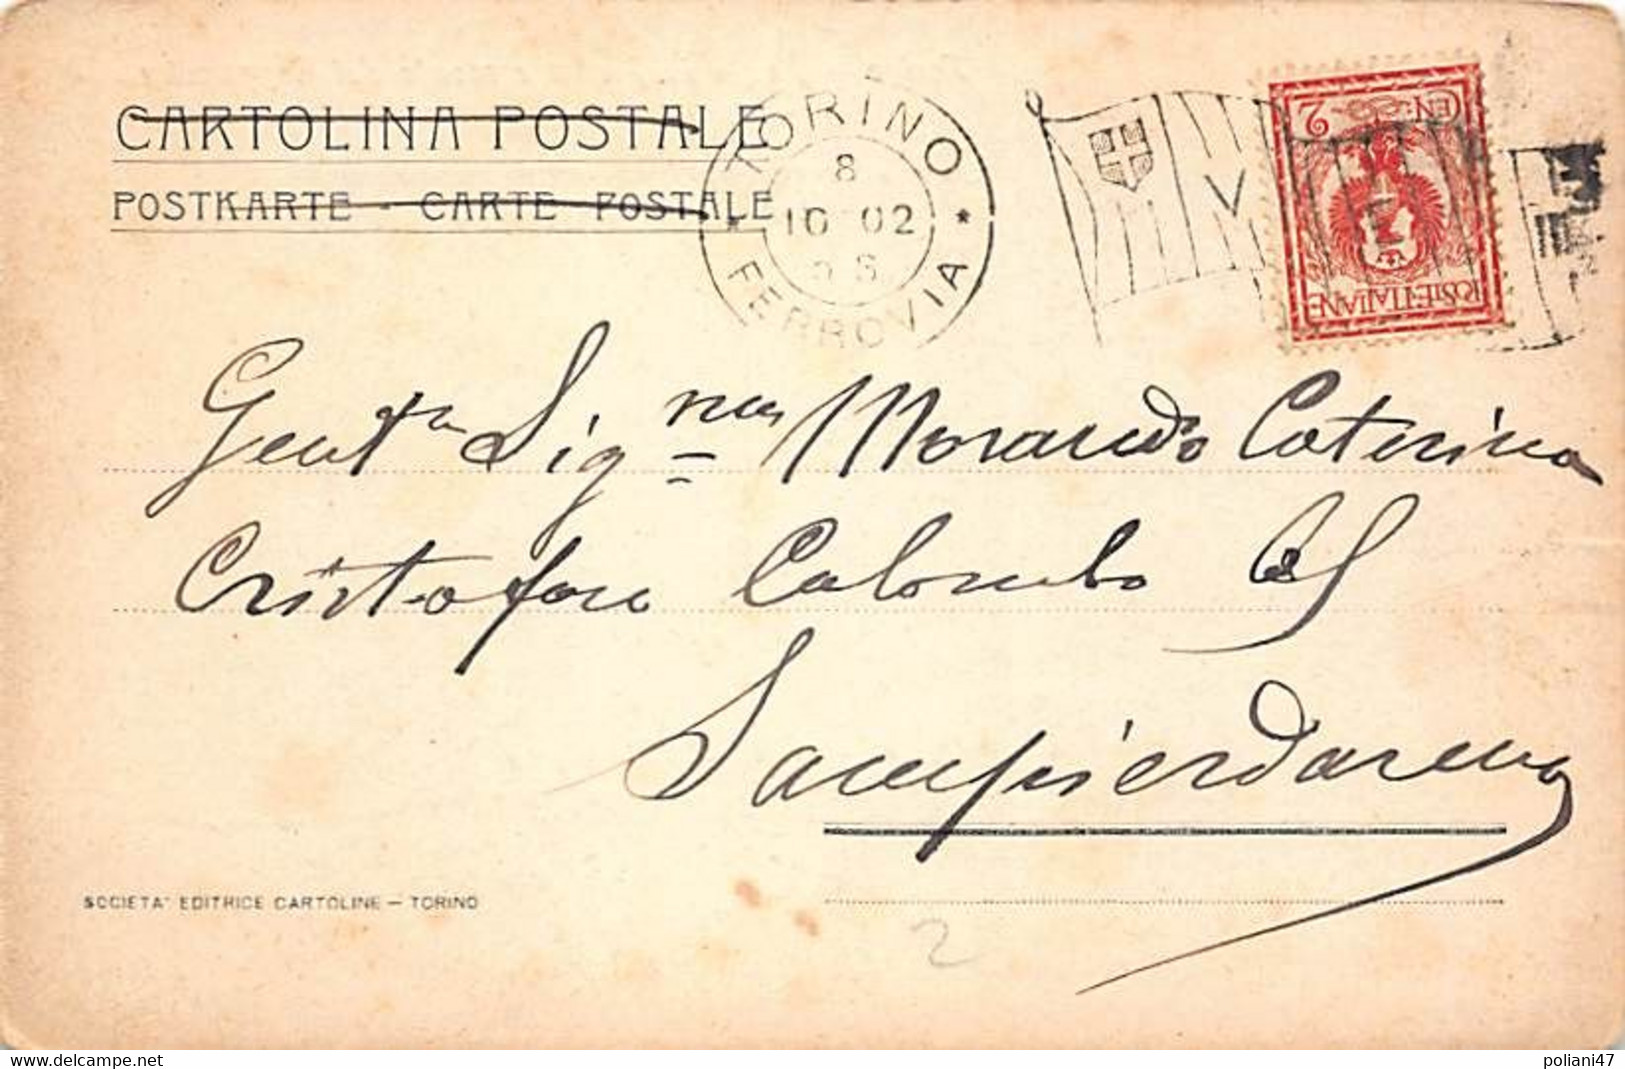 CARTOLINA POSTALE
POSTKARTE - CARTE POSTALE
TORINO
8
10 02
FERROVIA
V
CEN. 2
POSTE·ITALIANE
Gent. Sig.na Morando Caterina
Cristoforo Colombo
Sampierdarena
SOCIETA' EDITRICE CARTOLINE — TORINO
2
www.delcampe.net
poliani47